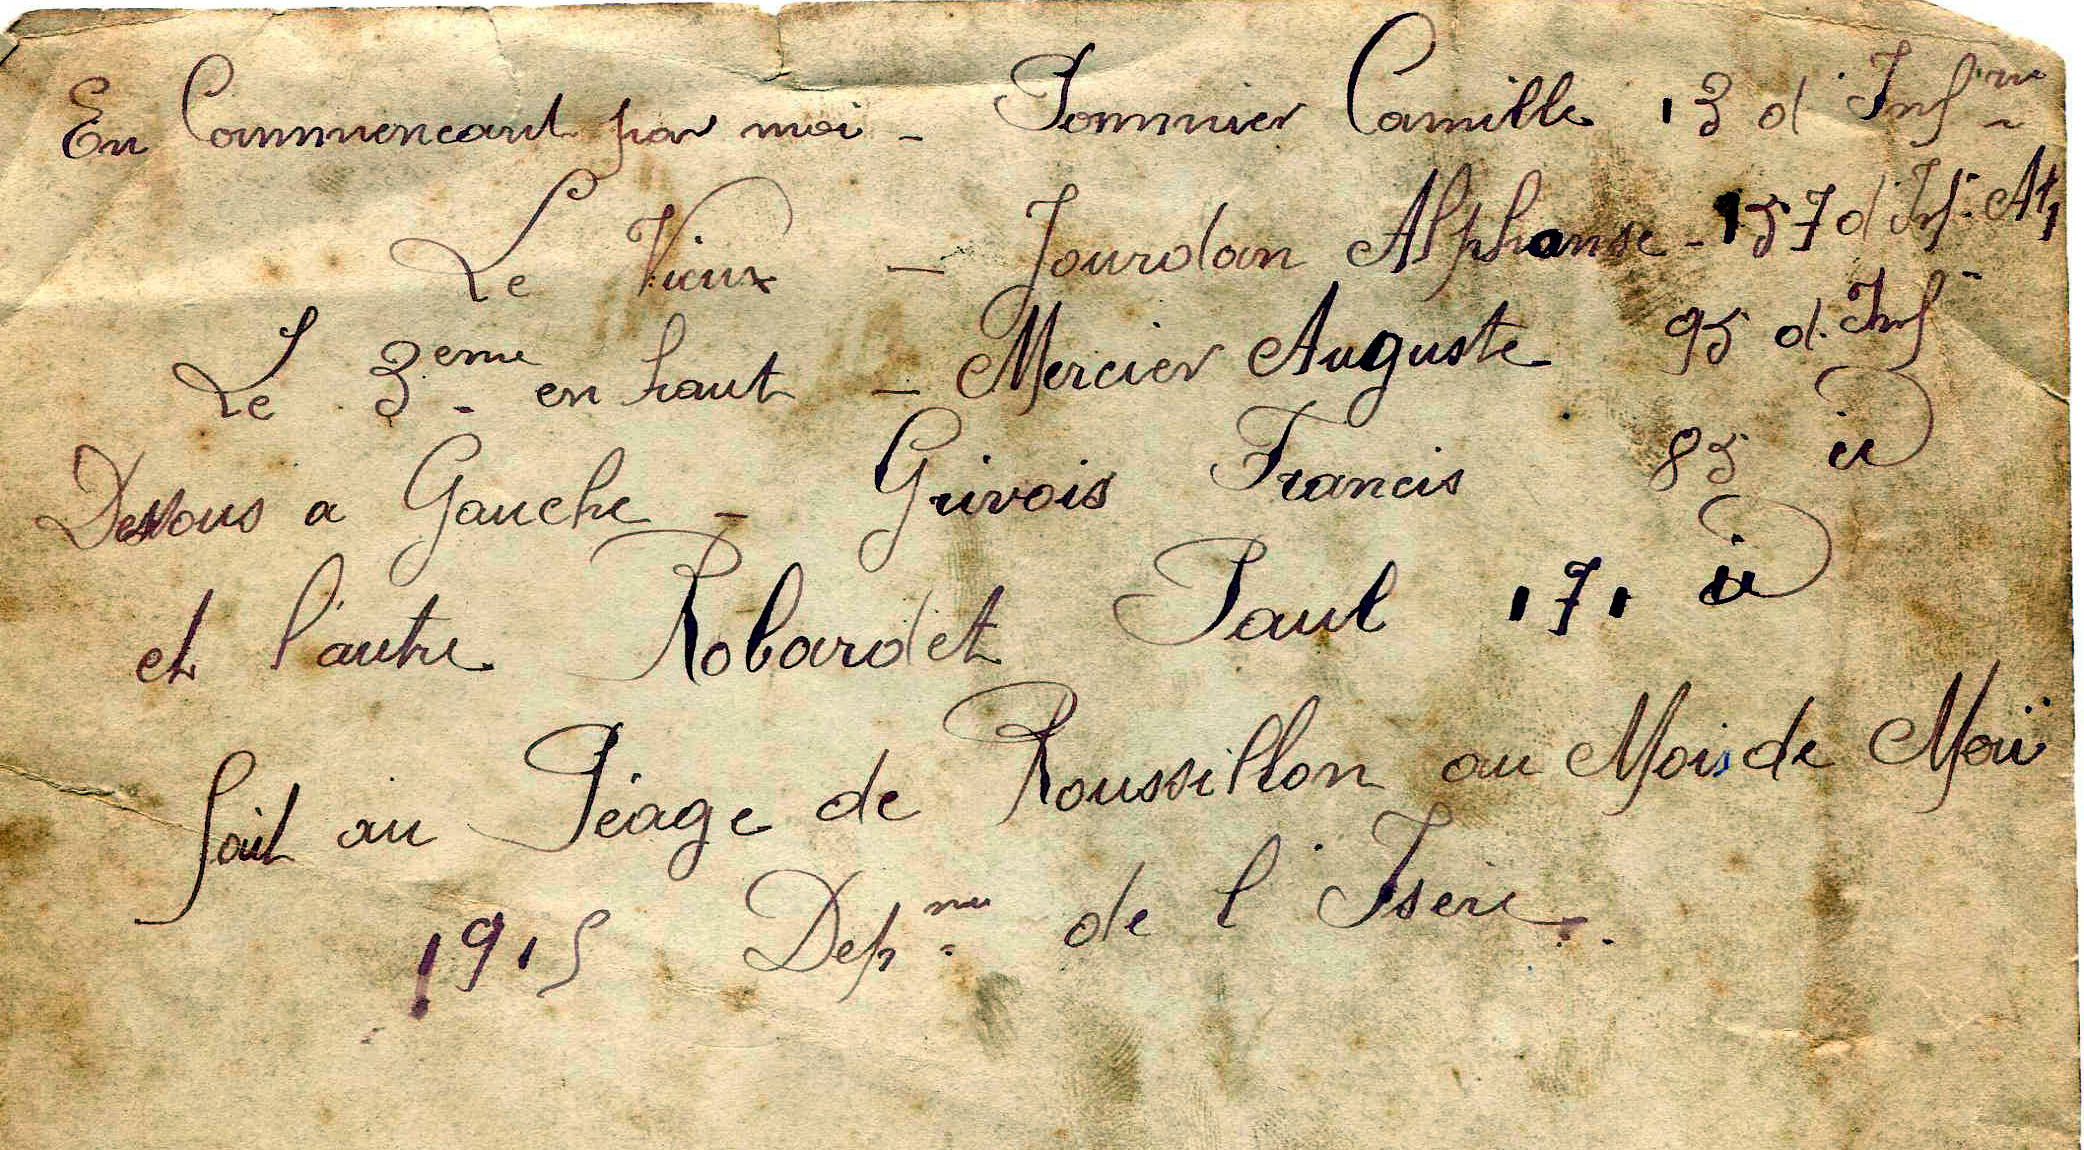 En Commencant par moi - Pommier Camille 13 d'Inf rie
Le Vieux - Jourdan Alphonse - 157 d'Inf.
Le 3eme en haut - Mercier Auguste 95 d'Inf
Dessous a Gauche - Grivois Francis 85 id
et l'autre Robardet Paul 171 id
fait au Péage de Roussillon au Mois de Mai
1915 Dep me de l'Isere.